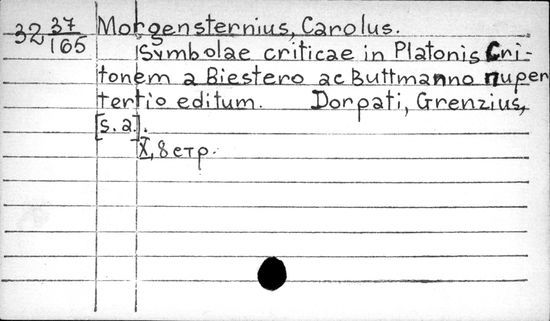 32 37/165 Morgensternius, Carolus.
Symbolae criticae in Platonis Cri-
tonem a Biestero ac Buttmanno nuper
tertio editum. Dorpati, Grenzius,
[s.a.].
X, 8 стр.